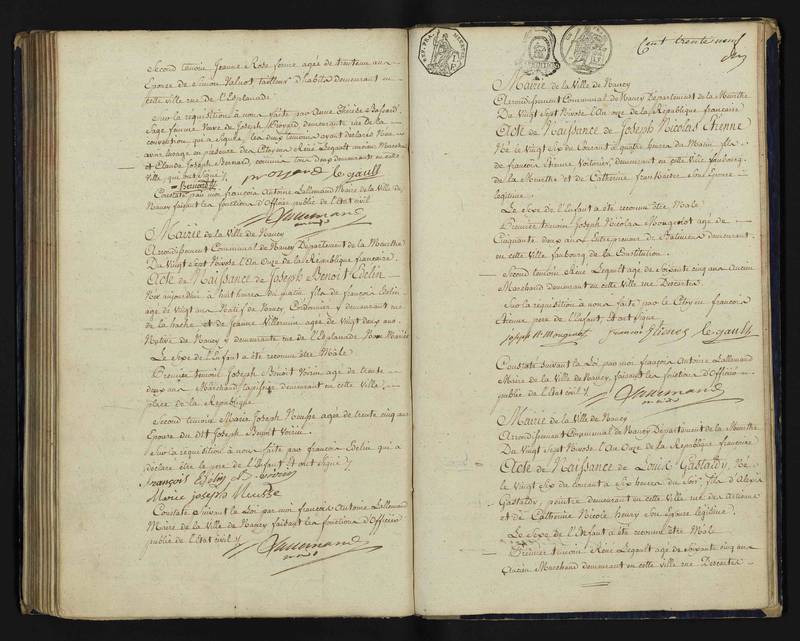 Second temoin Jeanne Rose ferme agée de trente un ans
Epouse de Simon Valuot tailleur d'habits demeurant en
cette ville rue de l'Esplanade
Sur la requisition à nous faite par Anne Thérèse
Sage femme Veuve de Joseph Provard, demeurante rue de la
convention qui a signé, les deux temoins ayant declarés n'en
avoir l'usage en presence des Citoyens René Legault ancien Marchand
et Claude Joseph Bernard, commis tous deux demeurants en cette
Ville, qui ont signé
Bernard provard le gault
Constaté par moi françois Antoine Lallemand Maire de la Ville de
Nancy faisant les fonctions d'Officier public de l'Etat civil
Lallemand
maire
Mairie de la Ville de Nancy
Arrondissement Communal de Nancy Département de la Meurthe
Du Vingt Sept Nivose l'An Onze de la République francaise
Acte de Naissance de Joseph Benoit Edelin
Né aujourdhui à huit heures du matin fils de françois Edelin
agé de Vingt ans Natif de Nancy Cordonnier y demeurant rue
de la hache et de Jeanne Villemin agée de Vingt deux ans
Native de Nancy y demeurante rue de l'Esplanade Non Mariés
Le Sexe de l'Enfant a été reconnu être Male
Premier temoin Joseph Benoit Voirin agé de trente
deux ans Marchand tapissier demeurant en cette Ville
place de la République
Second temoin Marie Joseph Neusse agée de trente cinq ans
Epouse du dit Joseph Benoit Voirin
Sur la requisition à nous faite par françois Edelin qui a
déclaré être le pere de l'Enfant et ont signé
françois Edelin B. Voirin
Marie joseph Neusse
Constaté Suivant la Loi par moi françois Antoine Lallemand
Maire de la Ville de Nancy faisant les fonctions d'Officier
public de l'Etat civil
Lallemand
maire
Cent trente neuf
Mairie de la Ville de Nancy
Arrondissement Communal de Nancy Département de la Meurthe
Du Vingt Sept Nivose l'An Onze de la République francaise
Acte de Naissance de Joseph Nicolas Etienne
Né le Vingt Six du Courant à quatre heures du Matin fils
de françois Etienne Voiturier, demeurant en cette Ville faubourg
de la Meurthe et de Catherine Son Epouse
legitime
Le Sexe de l'Enfant a été reconnu être Male
Premier temoin Joseph Nicolas Mougeolot agé de
Cinquante deux ans Entrepreneur de Batimens demeurant
en cette Ville faubourg de la Constitution
Second temoin René Legault agé de Soixante cinq ans Ancien
Marchand demeurant en cette Ville rue Descartes
Sur la requisition à nous faite par le Citoyen francois
Etienne pere de l'Enfant et ont signé
joseph N. Mougeolot francois Etienne le gault
Constaté suivant la Loi par moi françois Antoine Lallemand
Maire de la Ville de Nancy, faisant les fonctions d'Officier
public de l'Etat civil
Lallemand
maire
Mairie de la Ville de Nancy
Arrondissement Communal de Nancy Département de la Meurthe
Du Vingt Sept Nivose l'An Onze de la République francaise
Acte de Naissance de Louis Gastaldy, Né
le Vingt Six du Courant à Six heures du Soir, fils d'Alexis
Gastaldy, peintre demeurant en cette Ville rue des Artisans
et de Catherine Nicole henry Son Epouse legitime
Le Sexe de l'Enfant a été reconnu être Male
Premier temoin René Legault agé de Soixante cinq ans
Ancien Marchand demeurant en cette Ville rue Descartes